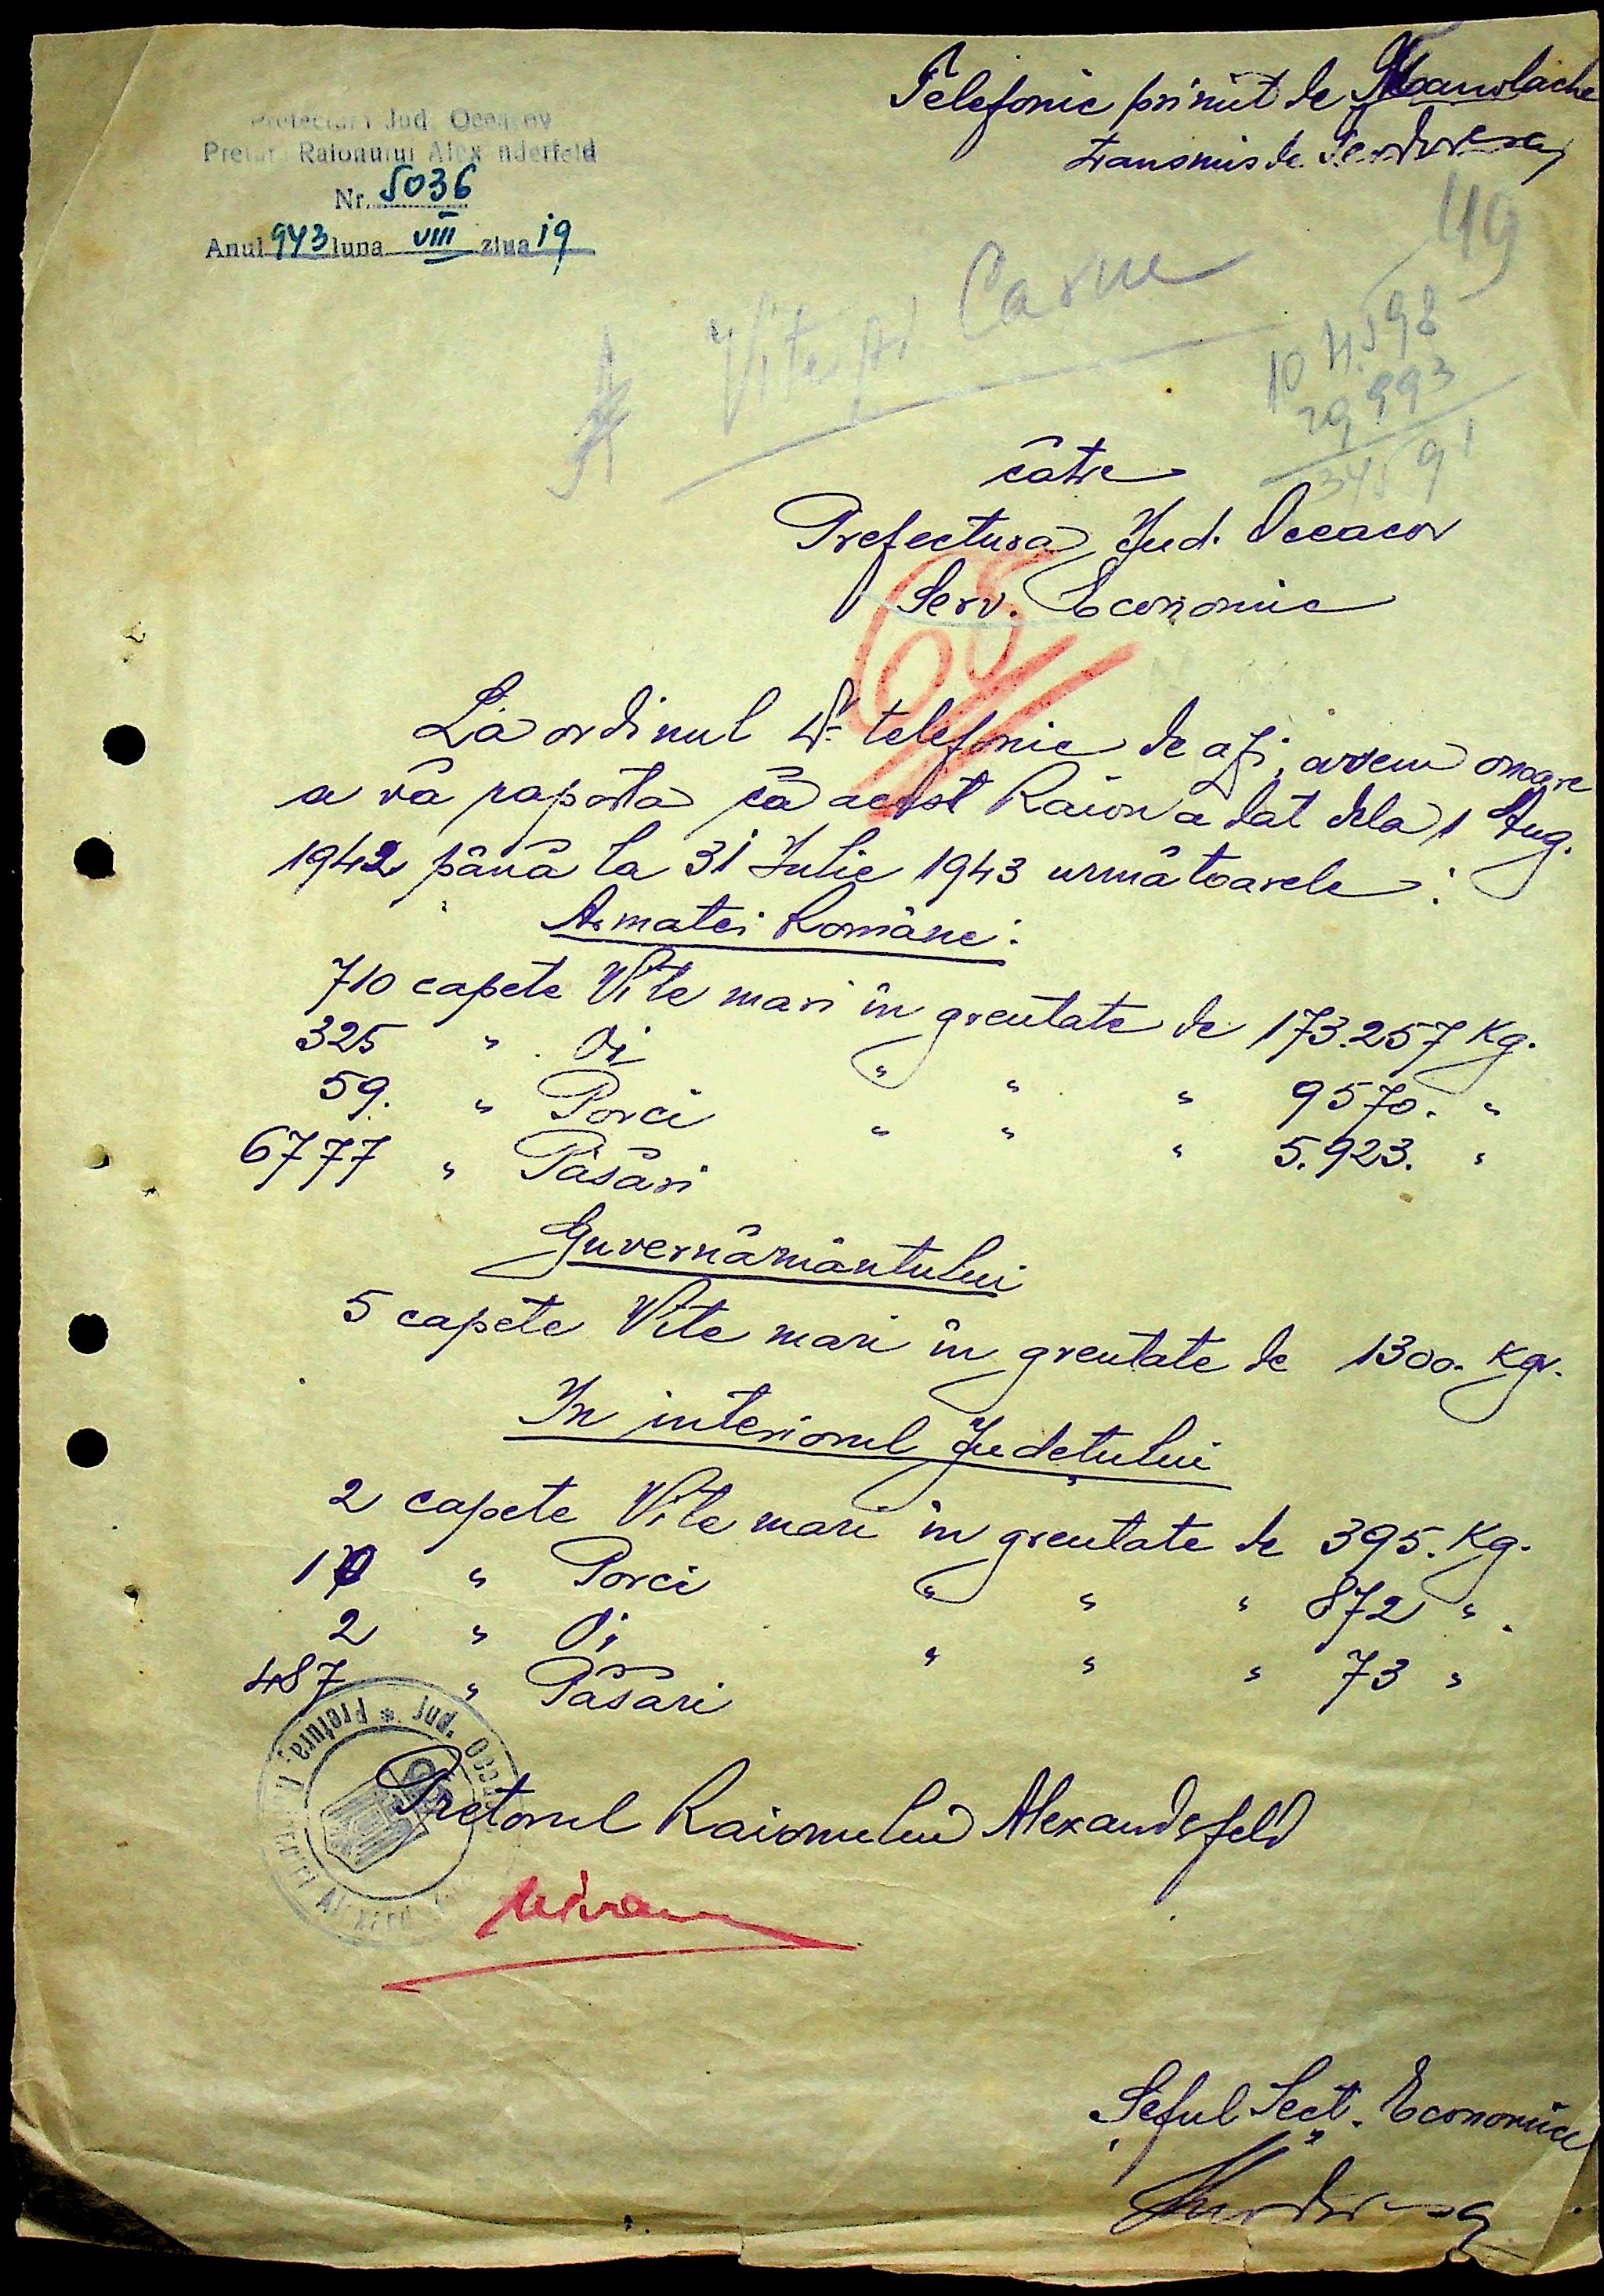 Telefonic primit de Manolache
transmis de
Prefectura Jud. Oceacov
Pretura Raionului Alexanderfeld
Nr. 5036
Anul 943 luna VIII ziua 19
119
Vite și Carne
104.598
29.993
134591
cătr
Prefectura Jud. Oceacov
Serv. Economic
La ordinul Dv. telefonic de azi, avem onoare
a vă raporta că acest Raion a dat dela 1 Aug.
1942 până la 31 Iulie 1943 următoarele:
Armatei Române:
710 capete Vite mari în greutate de 173.257 Kg.
325 " Oi " " " 9570. "
59. " Porci " " " 5.923. "
6777 " Păsări
Guvernământului
5 capete Vite mari în greutate de 1300. Kgr.
In interiorul Județului
2 capete Vite mari în greutate de 395. Kg.
10 " Porci " " " 872 "
2 " Oi " " " 73 "
487 " Păsări
Pretorul Raionului Alexandefeld
Șeful Secț. Economice